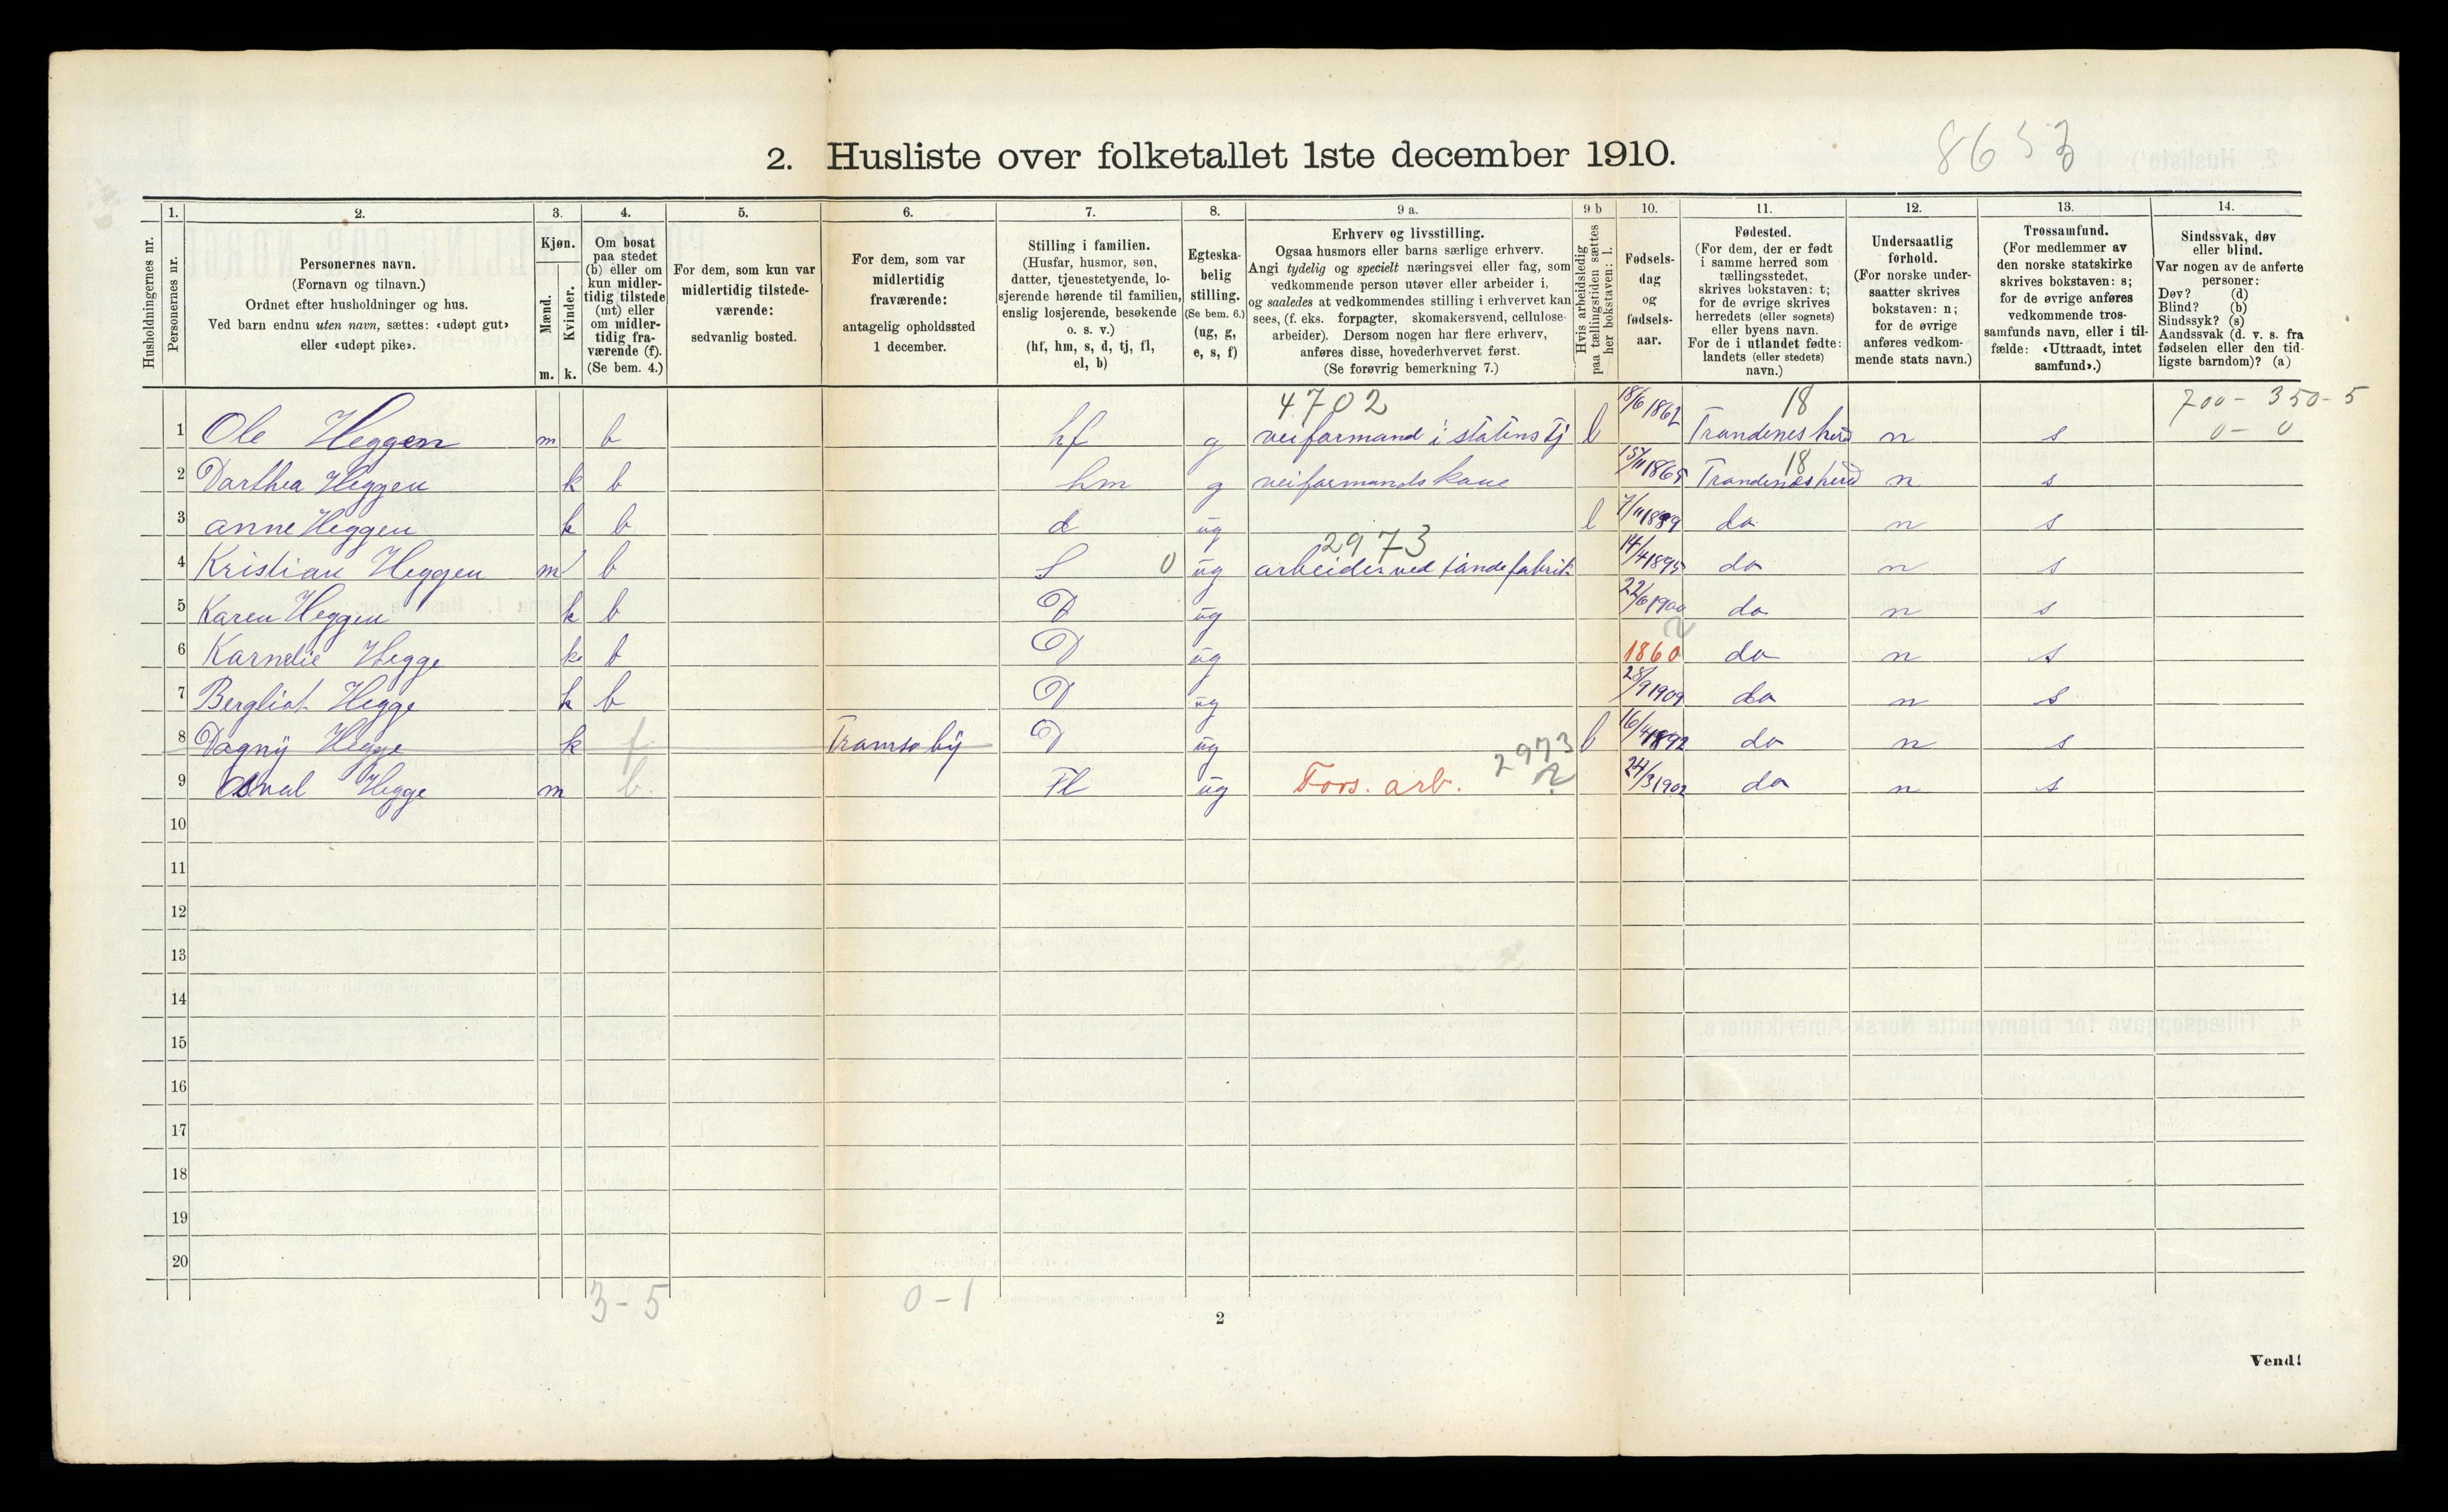 8653
2. Husliste over folketallet 1ste december 1910.
Husholdningernes nr.
1. Personernes nr.
2. Personernes navn. (Fornavn og tilnavn.) Ordnet efter husholdninger og hus. Ved barn endnu uten navn, sættes: «udøpt gut» eller «udøpt pike».
3. Kjøn. Mænd. m. Kvinder. k.
4. Om bosat paa stedet (b) eller om kun midlertidig tilstede (mt) eller om midlertidig fraværende (f). (Se bem. 4.)
5. For dem, som kun var midlertidig tilstedeværende: sedvanlig bosted.
6. For dem, som var midlertidig fraværende: antagelig opholdssted 1 december.
7. Stilling i familien. (Husfar, husmor, søn, datter, tjenestetyende, losjerende hørende til familien, enslig losjerende, besøkende o. s. v.) (hf, hm, s, d, tj, fl, el, b)
8. Egteskabelig stilling. (Se bem. 6.) (ug, g, e, s, f)
9 a. Erhverv og livsstilling. Ogsaa husmors eller barns særlige erhverv. Angi tydelig og specielt næringsvei eller fag, som vedkommende person utøver eller arbeider i, og saaledes at vedkommendes stilling i erhvervet kan sees, (f. eks. forpagter, skomakersvend, cellulosearbeider). Dersom nogen har flere erhverv, anføres disse, hovederhvervet først. (Se forøvrig bemerkning 7.)
9 b Hvis arbeidsledig paa tællingstiden sættes her bokstaven: l.
10. Fødselsdag og fødselsaar.
11. Fødested. (For dem, der er født i samme herred som tællingsstedet, skrives bokstaven: t; for de øvrige skrives herredets (eller sognets) eller byens navn. For de i utlandet fødte: landets (eller stedets) navn.)
12. Undersaatlig forhold. (For norske undersaatter skrives bokstaven: n; for de øvrige anføres vedkommende stats navn.)
13. Trossamfund. (For medlemmer av den norske statskirke skrives bokstaven: s; for de øvrige anføres vedkommende trossamfunds navn, eller i tilfælde: «Uttraadt, intet samfund».)
14. Sindssvak, døv eller blind. Var nogen av de anførte personer: Døv? (d) Blind? (b) Sindssyk? (s) Aandssvak (d. v. s. fra fødselen eller den tidligste barndom)? (a)
4702 18 700 - 350 - 5
1 Ole Heggen m b hf g veiformand i statens tj l 18/6 1862 Trondenes herd n s 0 - 0
18
2 Dorthea Heggen k b hm g veiformandskone 15/11 1865 Trondenes herd n s
3 Anne Heggen k b d ug l 7/11 1889 do n s
2973
4 Kristian Heggen m b S 0 ug arbeider ved tøndefabrik 14/4 1895 do n s
5 Karen Heggen k b D ug 22/6 1900 do n s
6 Kornelie Hegge k b D ug 1860 do n s
7 Bergliot Hegge k b D ug 28/9 1909 do n s
8 Dagny Hegge k f Tromsø by D ug l 16/4 1892 do n s
2973
9 Hegge m b. Fl ug Fors. arb. 24/3 1902 do n s
10
11
12
13
14
15
16
17
18
19
20
3 - 5 0 - 1
2
Vend!